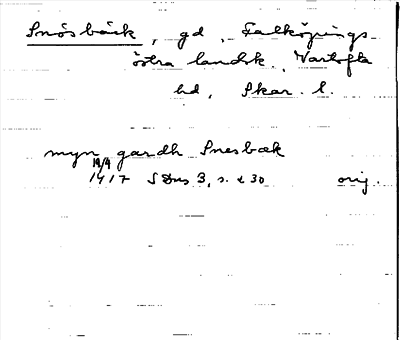 Snösbäck, gd, Falköpings
östra landsk. Vartofta
hd, Skar. l.
myn gardh Snesbæk
19/9
1417 SDns 3, s. 230 orig.